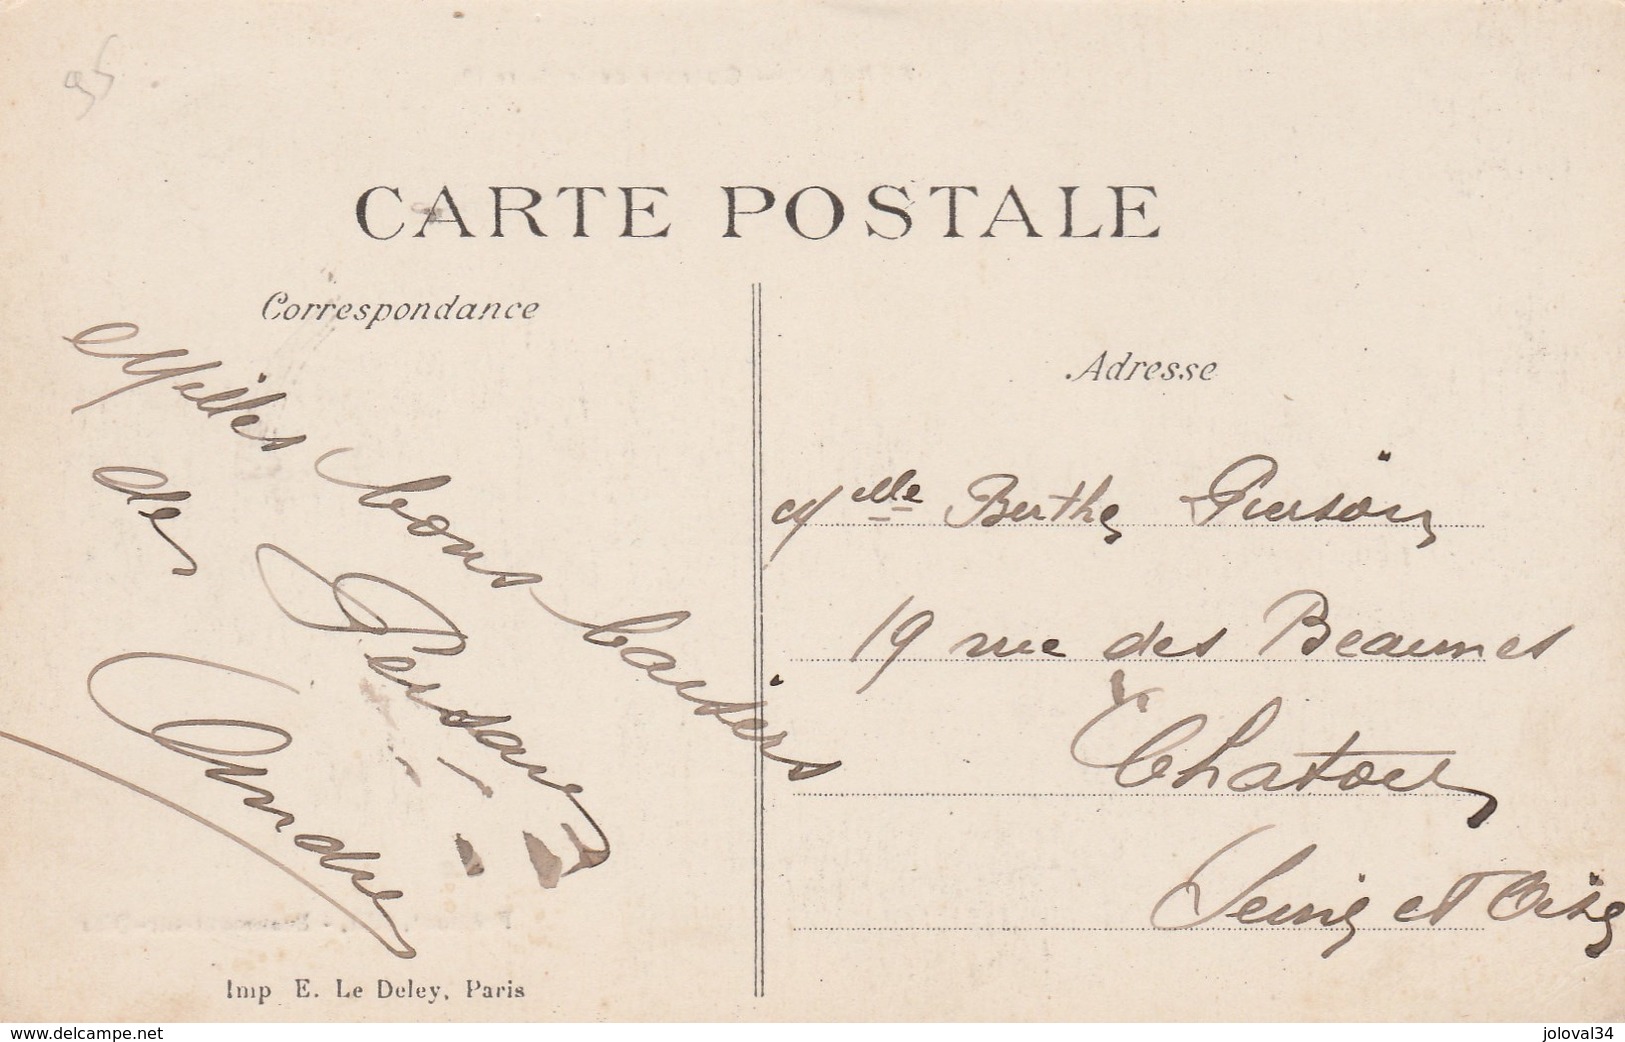 95
CARTE POSTALE
Correspondance
Milles bons baisers
de Persan
André
Imp E. Le Deley, Paris
Adresse
Mlle Berthe Pierson
19 rue des Beaumes
Chatou
Seine et Oise
www.delcampe.net
joloval34